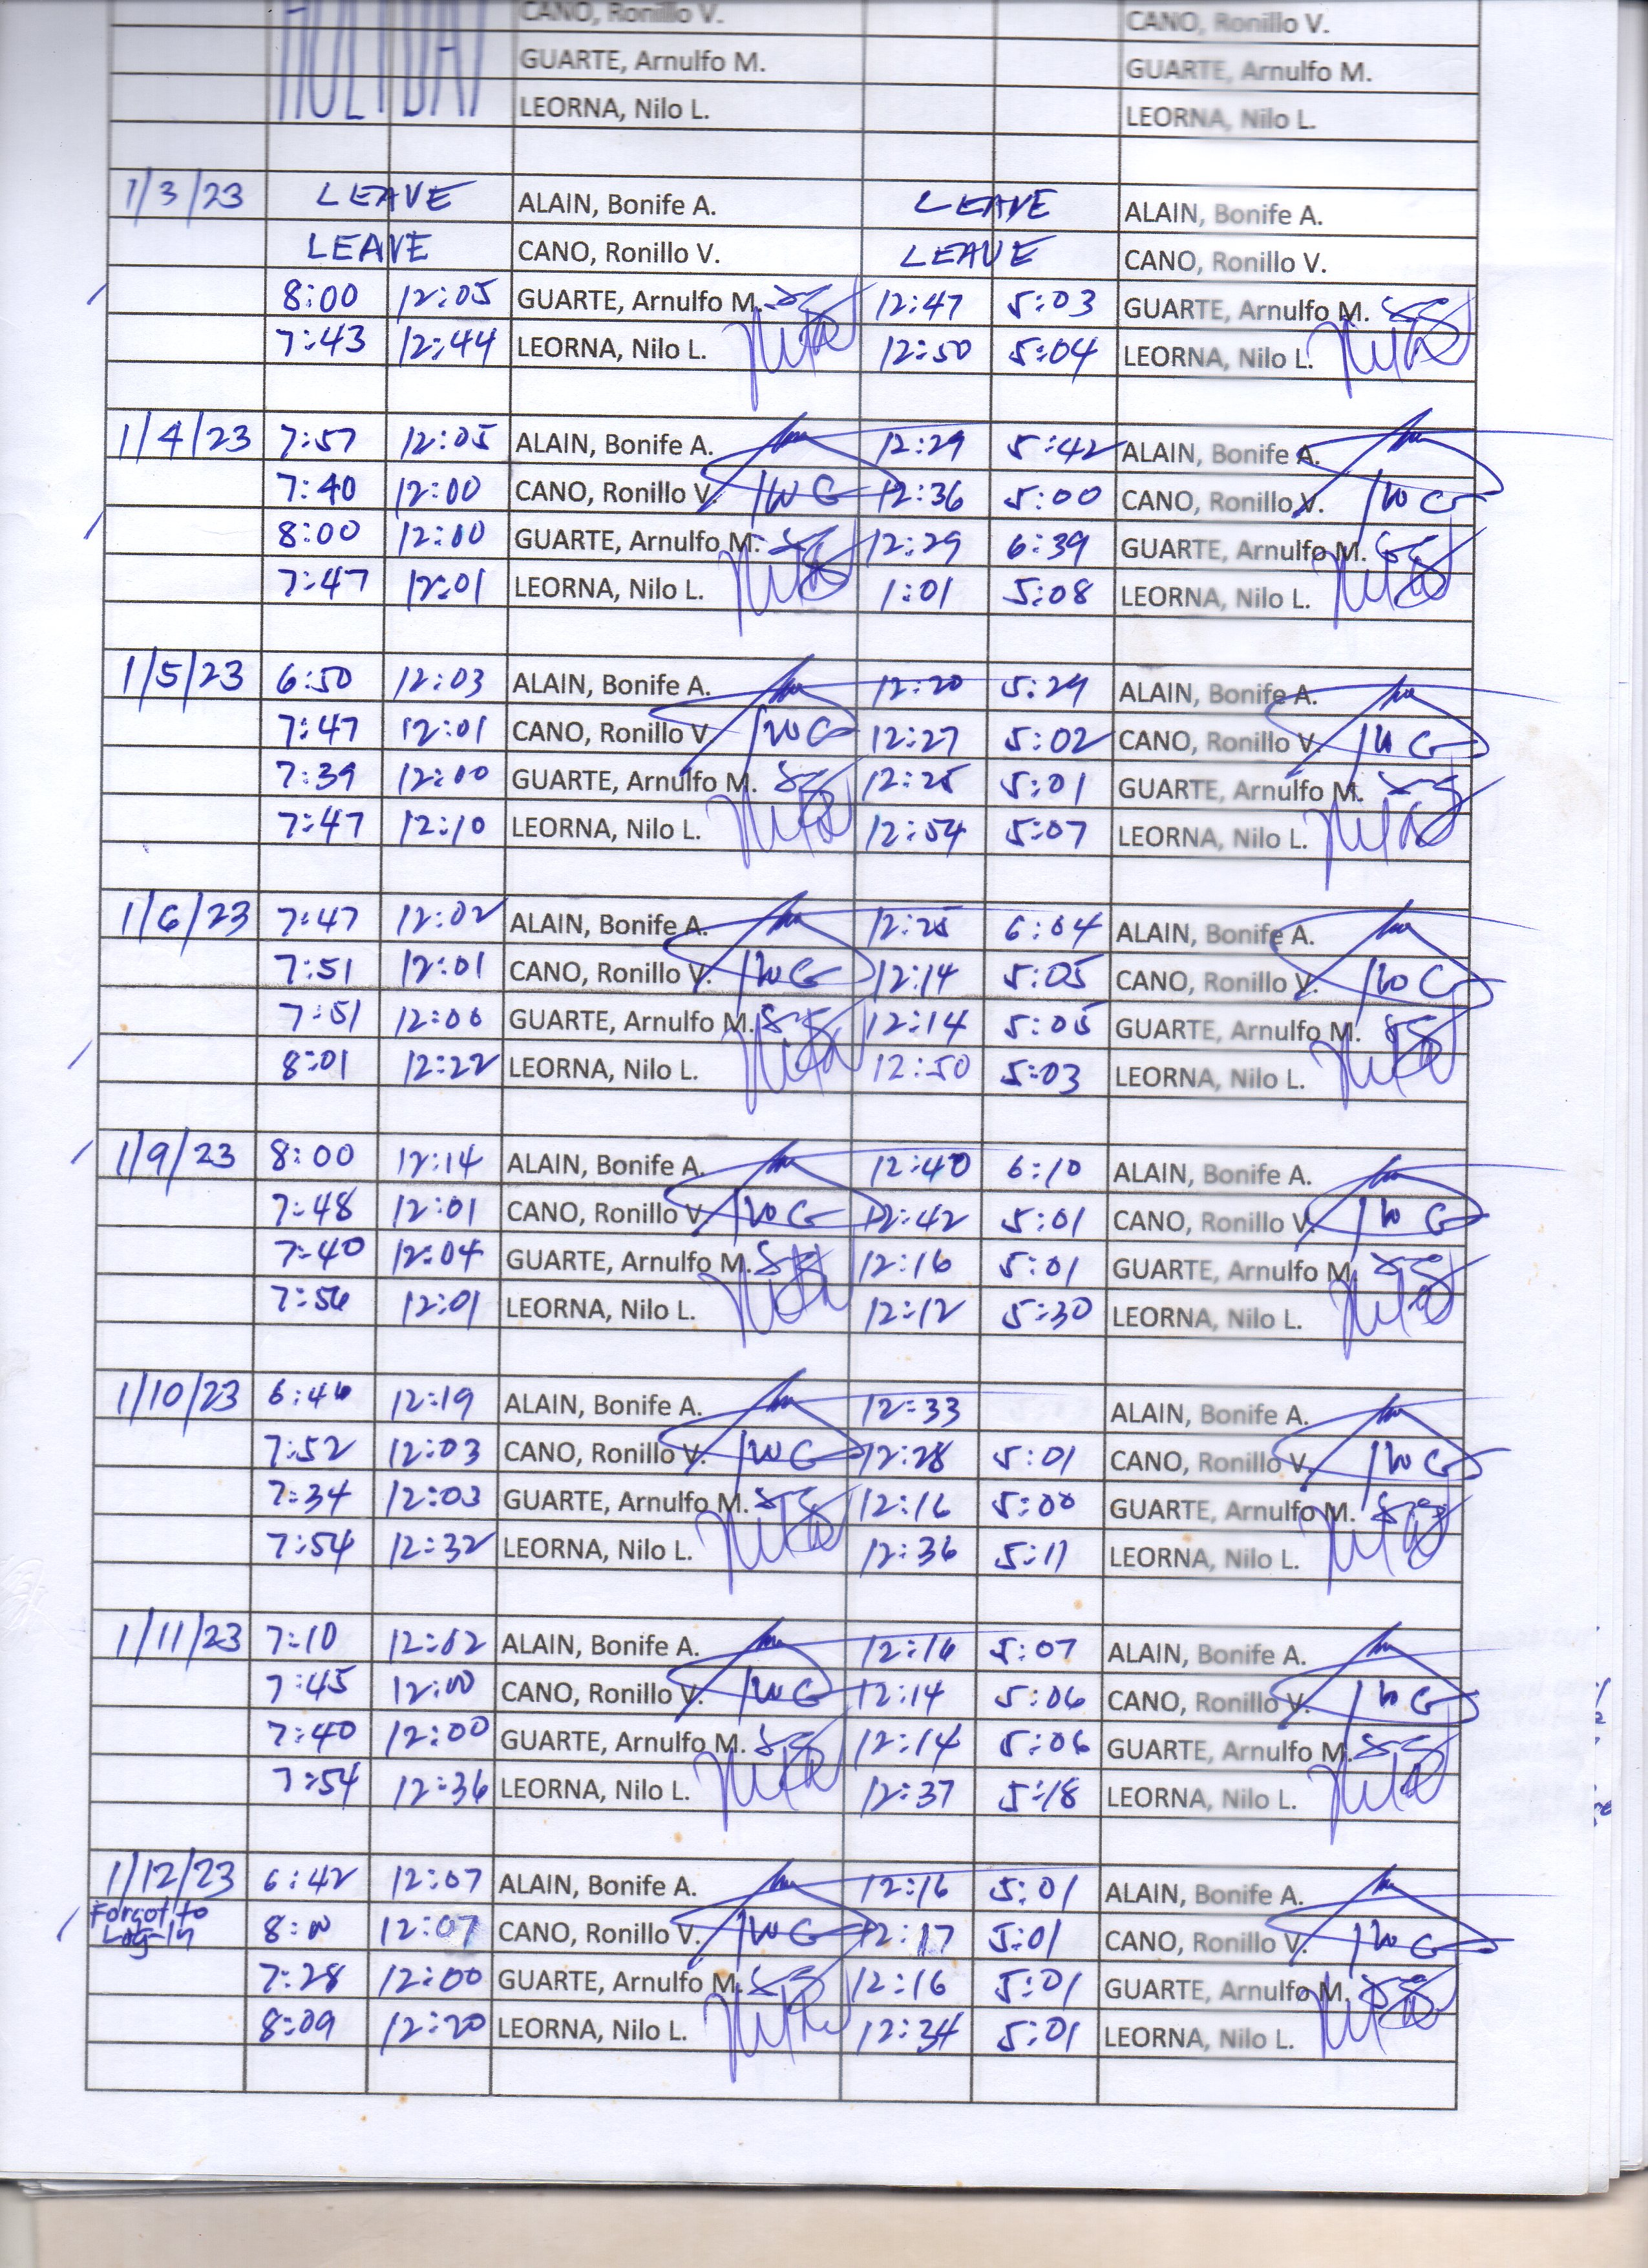 HOLIDAY CANO, Ronillo V. CANO, Ronillo V.
GUARTE, Arnulfo M. GUARTE, Arnulfo M.
LEORNA, Nilo L. LEORNA, Nilo L.
1/3/23 LEAVE ALAIN, Bonife A. LEAVE ALAIN, Bonife A.
LEAVE CANO, Ronillo V. LEAVE CANO, Ronillo V.
8:00 12:05 GUARTE, Arnulfo M. 12:47 5:03 GUARTE, Arnulfo M.
7:43 12:44 LEORNA, Nilo L. 12:50 5:04 LEORNA, Nilo L.
1/4/23 7:57 12:05 ALAIN, Bonife A. 12:29 5:42 ALAIN, Bonife A.
7:40 12:00 CANO, Ronillo V. 12:36 5:00 CANO, Ronillo V.
8:00 12:00 GUARTE, Arnulfo M. 12:29 6:39 GUARTE, Arnulfo M.
7:47 12:01 LEORNA, Nilo L. 1:01 5:08 LEORNA, Nilo L.
1/5/23 6:50 12:03 ALAIN, Bonife A. 12:20 5:29 ALAIN, Bonife A.
7:47 12:01 CANO, Ronillo V. 12:27 5:02 CANO, Ronillo V.
7:39 12:00 GUARTE, Arnulfo M. 12:25 5:01 GUARTE, Arnulfo M.
7:47 12:10 LEORNA, Nilo L. 12:54 5:07 LEORNA, Nilo L.
1/6/23 7:47 12:02 ALAIN, Bonife A. 12:25 6:04 ALAIN, Bonife A.
7:51 12:01 CANO, Ronillo V. 12:14 5:05 CANO, Ronillo V.
7:51 12:00 GUARTE, Arnulfo M. 12:14 5:05 GUARTE, Arnulfo M.
8:01 12:22 LEORNA, Nilo L. 12:50 5:03 LEORNA, Nilo L.
1/9/23 8:00 12:14 ALAIN, Bonife A. 12:40 6:10 ALAIN, Bonife A.
7:48 12:01 CANO, Ronillo V. 12:42 5:01 CANO, Ronillo V.
7:40 12:04 GUARTE, Arnulfo M. 12:16 5:01 GUARTE, Arnulfo M.
7:56 12:01 LEORNA, Nilo L. 12:12 5:30 LEORNA, Nilo L.
1/10/23 6:46 12:19 ALAIN, Bonife A. 12:33 ALAIN, Bonife A.
7:52 12:03 CANO, Ronillo V. 12:28 5:01 CANO, Ronillo V.
7:34 12:03 GUARTE, Arnulfo M. 12:16 5:00 GUARTE, Arnulfo M.
7:54 12:32 LEORNA, Nilo L. 12:36 5:11 LEORNA, Nilo L.
1/11/23 7:10 12:02 ALAIN, Bonife A. 12:16 5:07 ALAIN, Bonife A.
7:45 12:00 CANO, Ronillo V. 12:14 5:06 CANO, Ronillo V.
7:40 12:00 GUARTE, Arnulfo M. 12:14 5:06 GUARTE, Arnulfo M.
7:54 12:36 LEORNA, Nilo L. 12:37 5:18 LEORNA, Nilo L.
1/12/23 6:42 12:07 ALAIN, Bonife A. 12:16 5:01 ALAIN, Bonife A.
Forgot to
Log-In 8:00 12:07 CANO, Ronillo V. 12:17 5:01 CANO, Ronillo V.
7:28 12:00 GUARTE, Arnulfo M. 12:16 5:01 GUARTE, Arnulfo M.
8:09 12:20 LEORNA, Nilo L. 12:34 5:01 LEORNA, Nilo L.